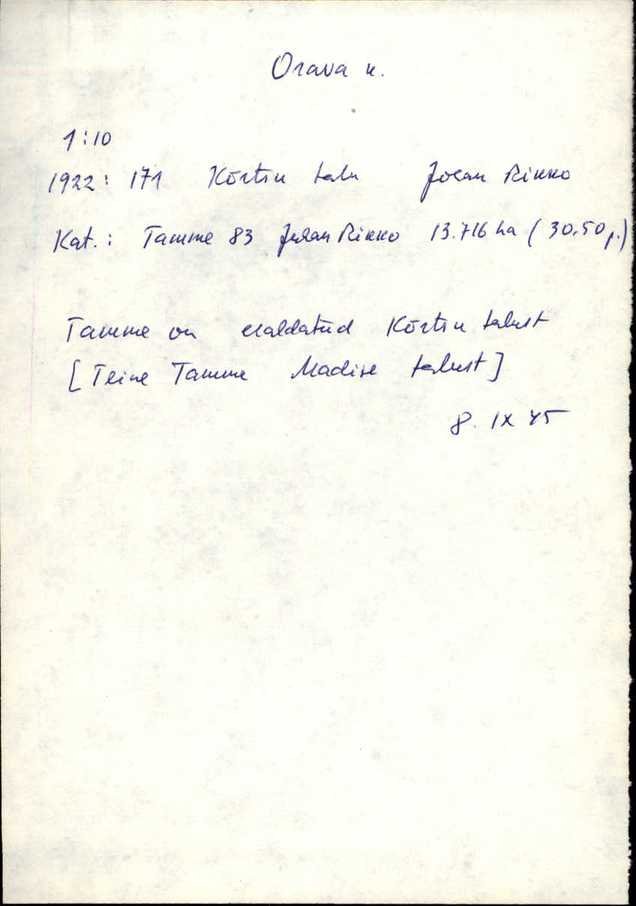 Orava k.
1:10
1922: 171 Kõrtsu talu Johan Rikko
Kat.: Tamme 83 Juhan Rikko 13.716 ha (30.50 p.)
Tamme on eraldatud Kõrtsu talust
[Teine Tamme Madise talust]
8. IX 45